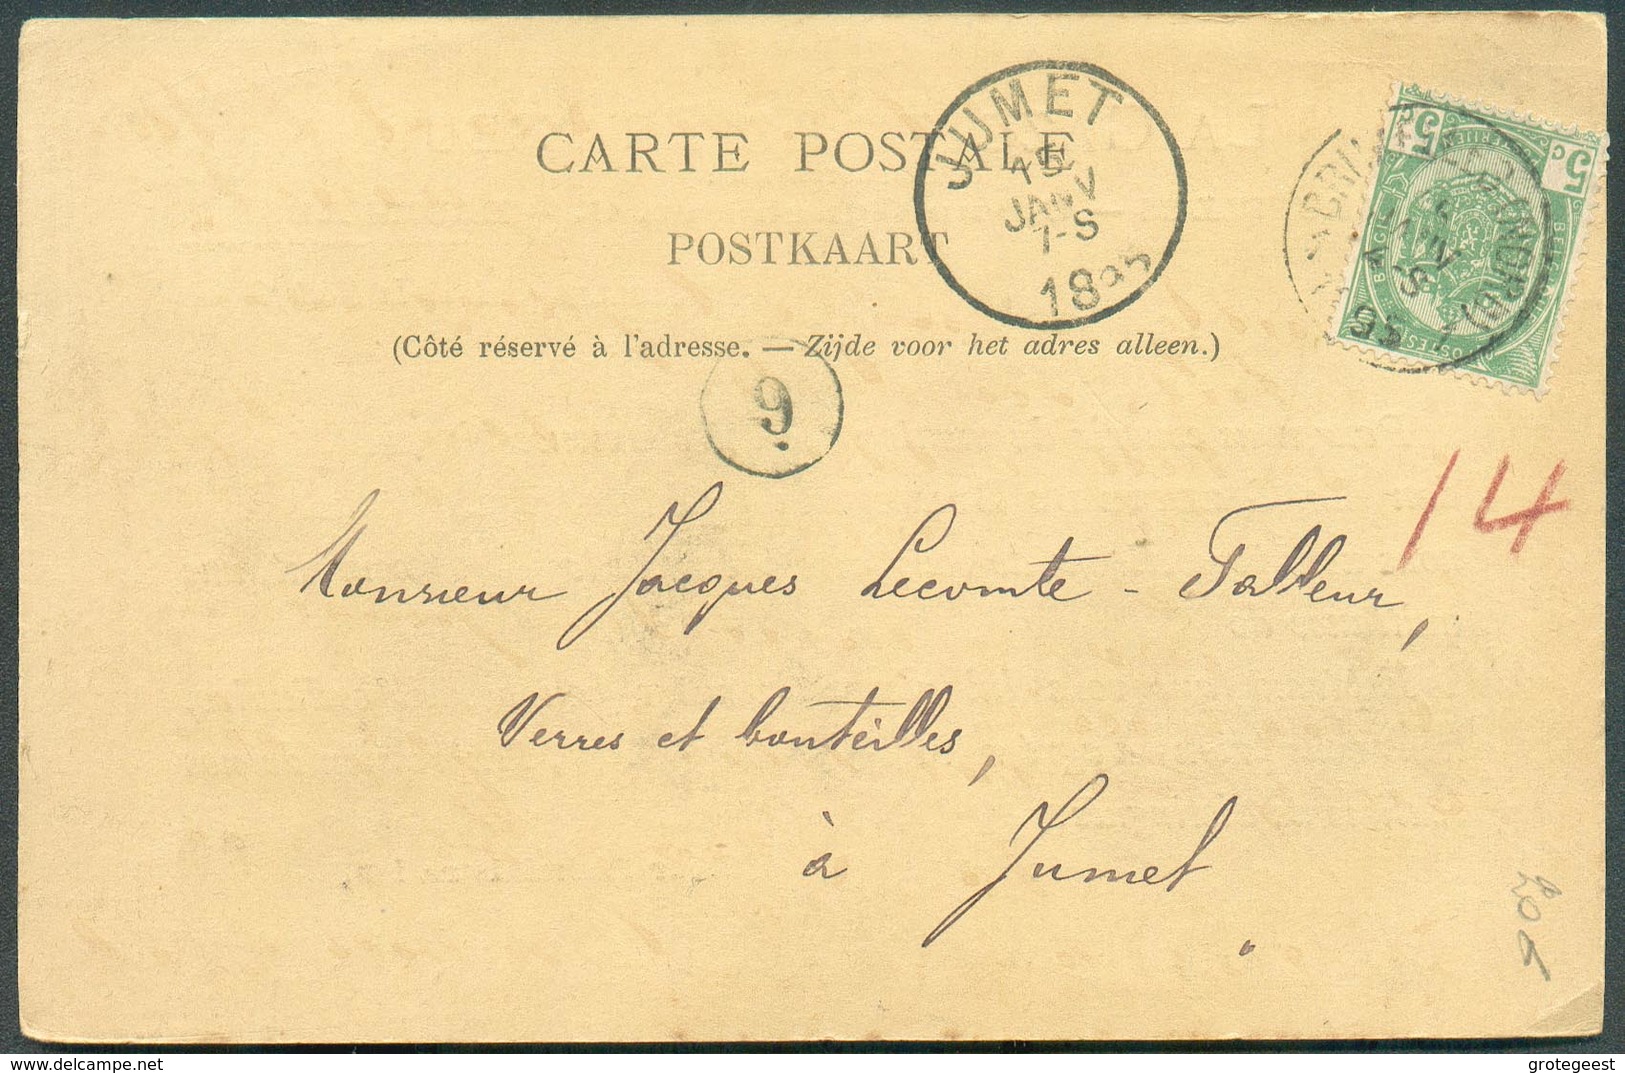 CARTE POSTALE
POSTKAART
(Côté réservé à l'adresse. — Zijde voor het adres alleen.)
JUMET
15
JANV
7-S
1895
9
5 c 5 c
14
Monsieur Jacques Lecomte - Falleur,
Verres et bouteilles,
à Jumet
grotegeest